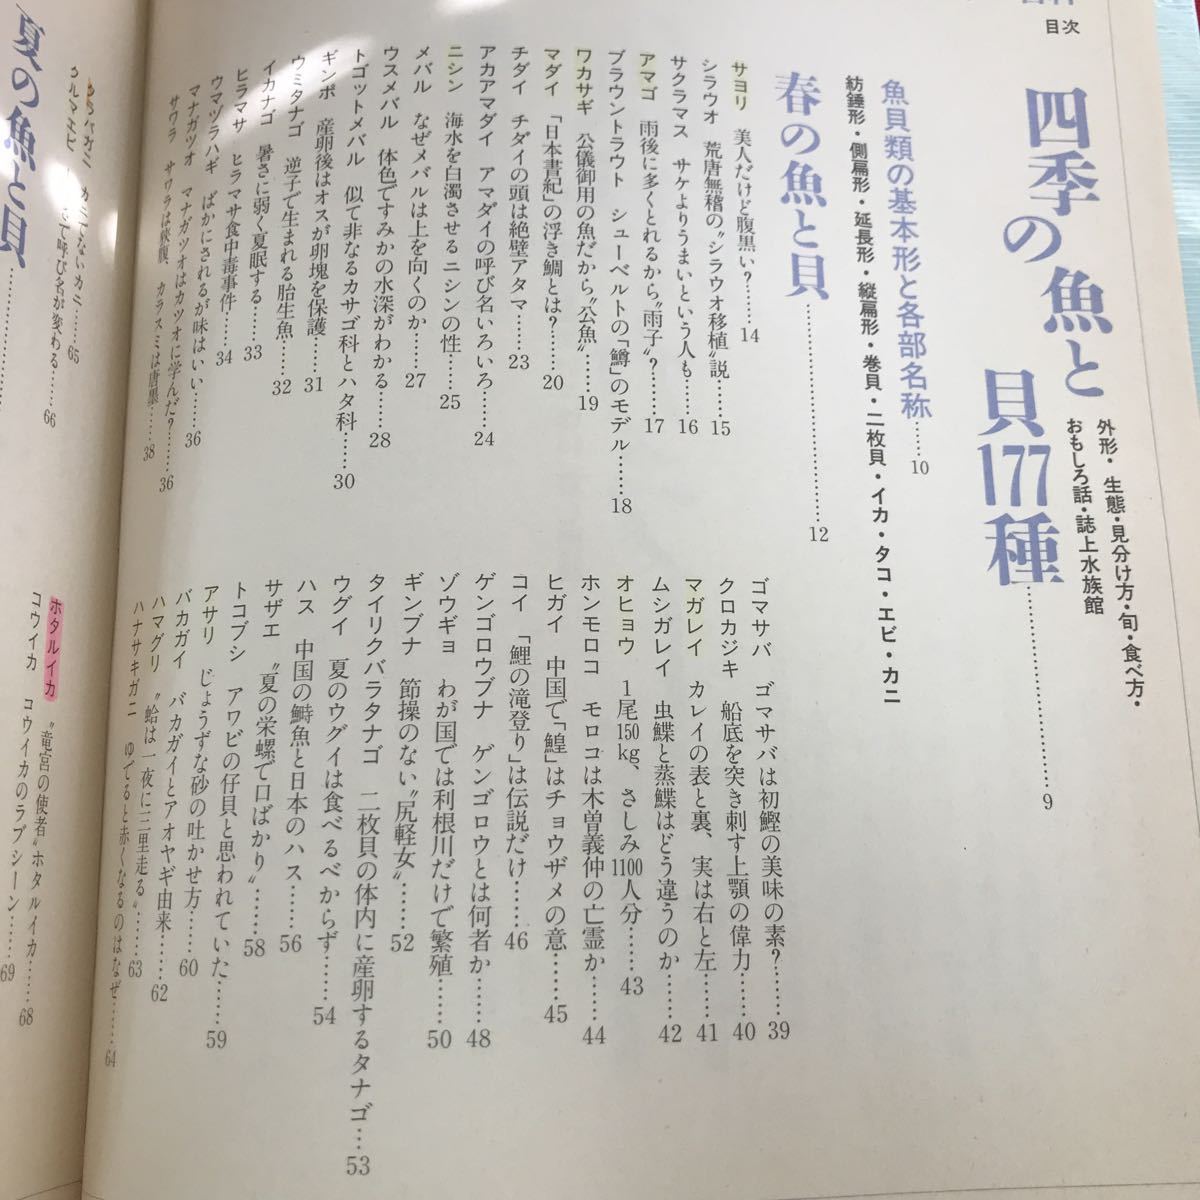 目次
四季の魚と
貝177種……9
外形・生態・見分け方・旬・食べ方・
おもしろ話・誌上水族館
魚貝類の基本形と各部名称……10
紡錘形・側扁形・延長形・縦扁形・巻貝・二枚貝・イカ・タコ・エビ・カニ
春の魚と貝……12
サヨリ 美人だけど腹黒い?……14
シラウオ 荒唐無稽の〝シラウオ移植〟説……15
サクラマス サケよりうまいという人も……16
アマゴ 雨後に多くとれるから〝雨子〟?……17
ブラウントラウト シューベルトの「鱒」のモデル……18
ワカサギ 公儀御用の魚だから〝公魚〟……19
マダイ 「日本書紀」の浮き鯛とは?……20
チダイ チダイの頭は絶壁アタマ……23
アカアマダイ アマダイの呼び名いろいろ……24
ニシン 海水を白濁させるニシンの性……25
メバル なぜメバルは上を向くのか……27
ウスメバル 体色ですみかの水深がわかる……28
トゴットメバル 似て非なるカサゴ科とハタ科……30
ギンポ 産卵後はオスが卵塊を保護……31
ウミタナゴ 逆子で生まれる胎生魚……32
イカナゴ 暑さに弱く夏眠する……33
ヒラマサ ヒラマサ食中毒事件……34
ウマヅラハギ ばかにされるが味はいい……36
マナガツオ マナガツオはカツオに学んだ?……36
サワラ サワラは狭腹、カラスミは唐墨……38
ゴマサバ ゴマサバは初鰹の美味の素?……39
クロカジキ 船底を突き刺す上顎の偉力……40
マガレイ カレイの表と裏、実は右と左……41
ムシガレイ 虫鰈と蒸鰈はどう違うのか……42
オヒョウ 1尾150kg、さしみ1100人分……43
ホンモロコ モロコは木曽義仲の亡霊か……44
ヒガイ 中国で「鰉」はチョウザメの意……45
コイ 「鯉の滝登り」は伝説だけ……46
ゲンゴロウブナ ゲンゴロウとは何者か……48
ゾウギョ わが国では利根川だけで繁殖……50
ギンブナ 節操のない〝尻軽女〟……52
タイリクバラタナゴ 二枚貝の体内に産卵するタナゴ…53
ウグイ 夏のウグイは食べるべからず……54
ハス 中国の鰣魚と日本のハス……56
サザエ 〝夏の栄螺で口ばかり〟……58
トコブシ アワビの仔貝と思われていた……59
アサリ じょうずな砂の吐かせ方……60
バカガイ バカガイとアオヤギ由来……62
ハマグリ 〝蛤は一夜に三里走る〟……63
ハナサキガニ ゆでると赤くなるのはなぜ……64
カニでないカニ……65
クルマエビ
さで呼び名が変わる……66
ホタルイカ 〝竜宮の使者〟ホタルイカ……68
コウイカ コウイカのラブシーン……69
夏の魚と貝……